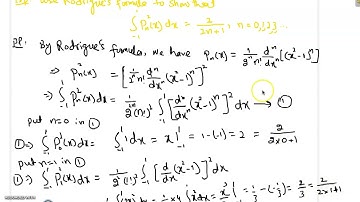 Use Rodrigue's formula to show that
∫₋₁¹ Pₙ²(x) dx = 2/(2n+1), n = 0,1,2,3,...
By Rodrigue's formula, we have Pₙ(x) = 1/(2ⁿ n!) dⁿ/dxⁿ [(x²-1)ⁿ]
⇒ Pₙ²(x) = [1/(2ⁿ n!) dⁿ/dxⁿ (x²-1)ⁿ]²
⇒ ∫₋₁¹ Pₙ²(x) dx = 1/(2²ⁿ (n!)²) ∫₋₁¹ [dⁿ/dxⁿ (x²-1)ⁿ]² dx → ①
put n=0 in ①
①⇒ ∫₋₁¹ P₀²(x) dx = ∫₋₁¹ 1 dx = x|₋₁¹ = 1-(-1) = 2 = 2/(2x0+1)
put n=1 in ①
①⇒ ∫₋₁¹ P₁²(x) dx = 1/(2²(1!)²) ∫₋₁¹ [d/dx (x²-1)]² dx